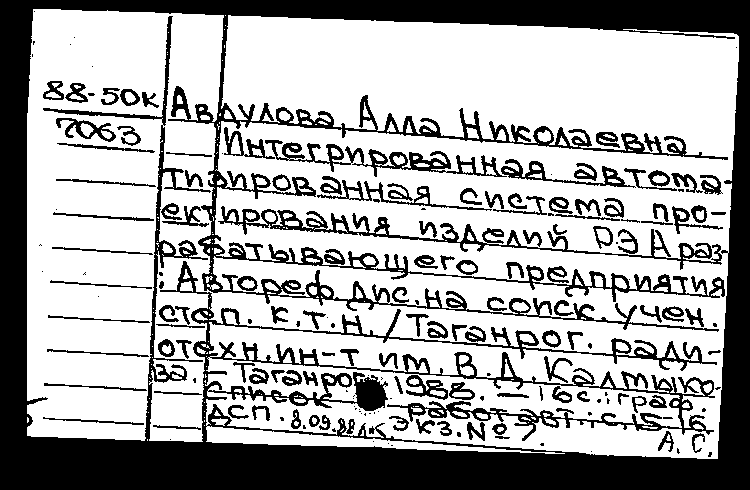 88-50к
7063
Авдулова, Алла Николаевна.
Интегрированная автома-
тизированная система про-
ектирования изделий РЭА раз-
рабатывающего предприятия
: Автореф. дис. на соиск. учен.
степ. к.т.н. / Таганрог. ради-
отехн. ин-т им. В.Д. Калмыко-
ва. – Таганрог, 1988. – 16 с. : граф.
Список работ авт.: с. 15-16
ДСП. 8.09.88 Экз. № 7.
А. С.